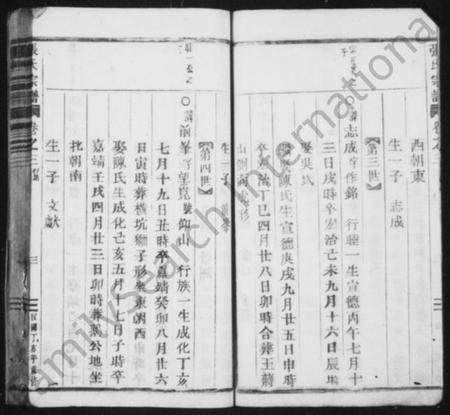 張氏宗譜
西朝東
生一子 志成
【第三世】
志成字作銘 行睦一生宣德丙午七月十
三日戌時卒宏治己未九月十六日辰時
娶吳氏
陳氏生宣德庚戌九月廿五日申時
卒宏治丁巳四月廿八日卯時合葬王蔣
生一子
【第四世】
諱前峯字望崑號仰山 行族一生成化丁亥
七月十九日丑時卒嘉靖癸卯八月廿六
日寅時葬橫坑獅子形坐東朝西
娶陳氏生成化己亥五月十七日子時卒
嘉靖壬戌四月廿三日卯時葬 公地坐
北朝南
生一子 文獻
張氏宗譜 卷之三
三
FamilySearch International